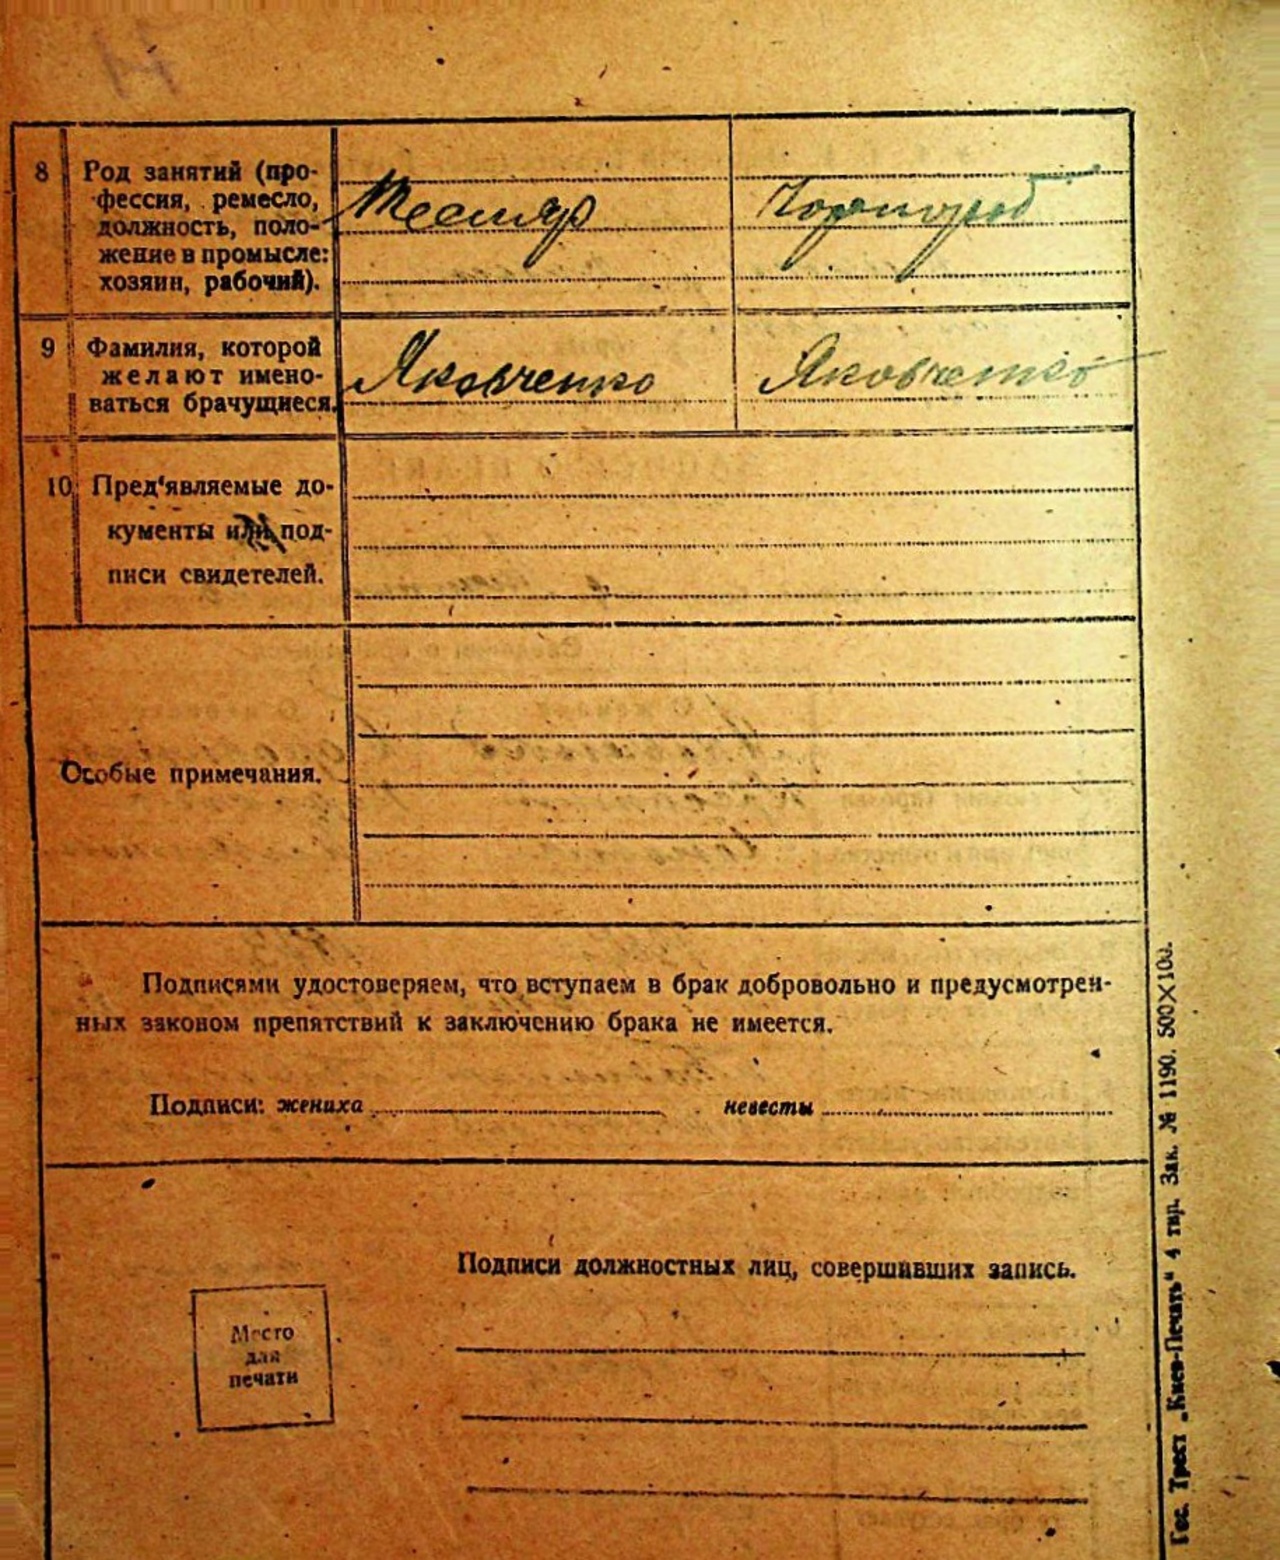 8 Род занятий (про-
фессия, ремесло,
должность, поло-
жение в промысле:
хозяин, рабочий).
Тесляр
Чорнороб
9 Фамилия, которой
желают имено-
ваться брачущиеся.
Яковченко
Яковченко
10 Пред‘являемые до-
кументы или под-
писи свидетелей.
Особые примечания.
Подписями удостоверяем, что вступаем в брак добровольно и предусмотрен-
ных законом препятствий к заключению брака не имеется.
Подписи: жениха невесты
Подписи должностных лиц, совершивших запись.
Место
для
печати
Гос. Трест „Киев-Печать“ 4 тир. Зак. № 1190. 500×100.